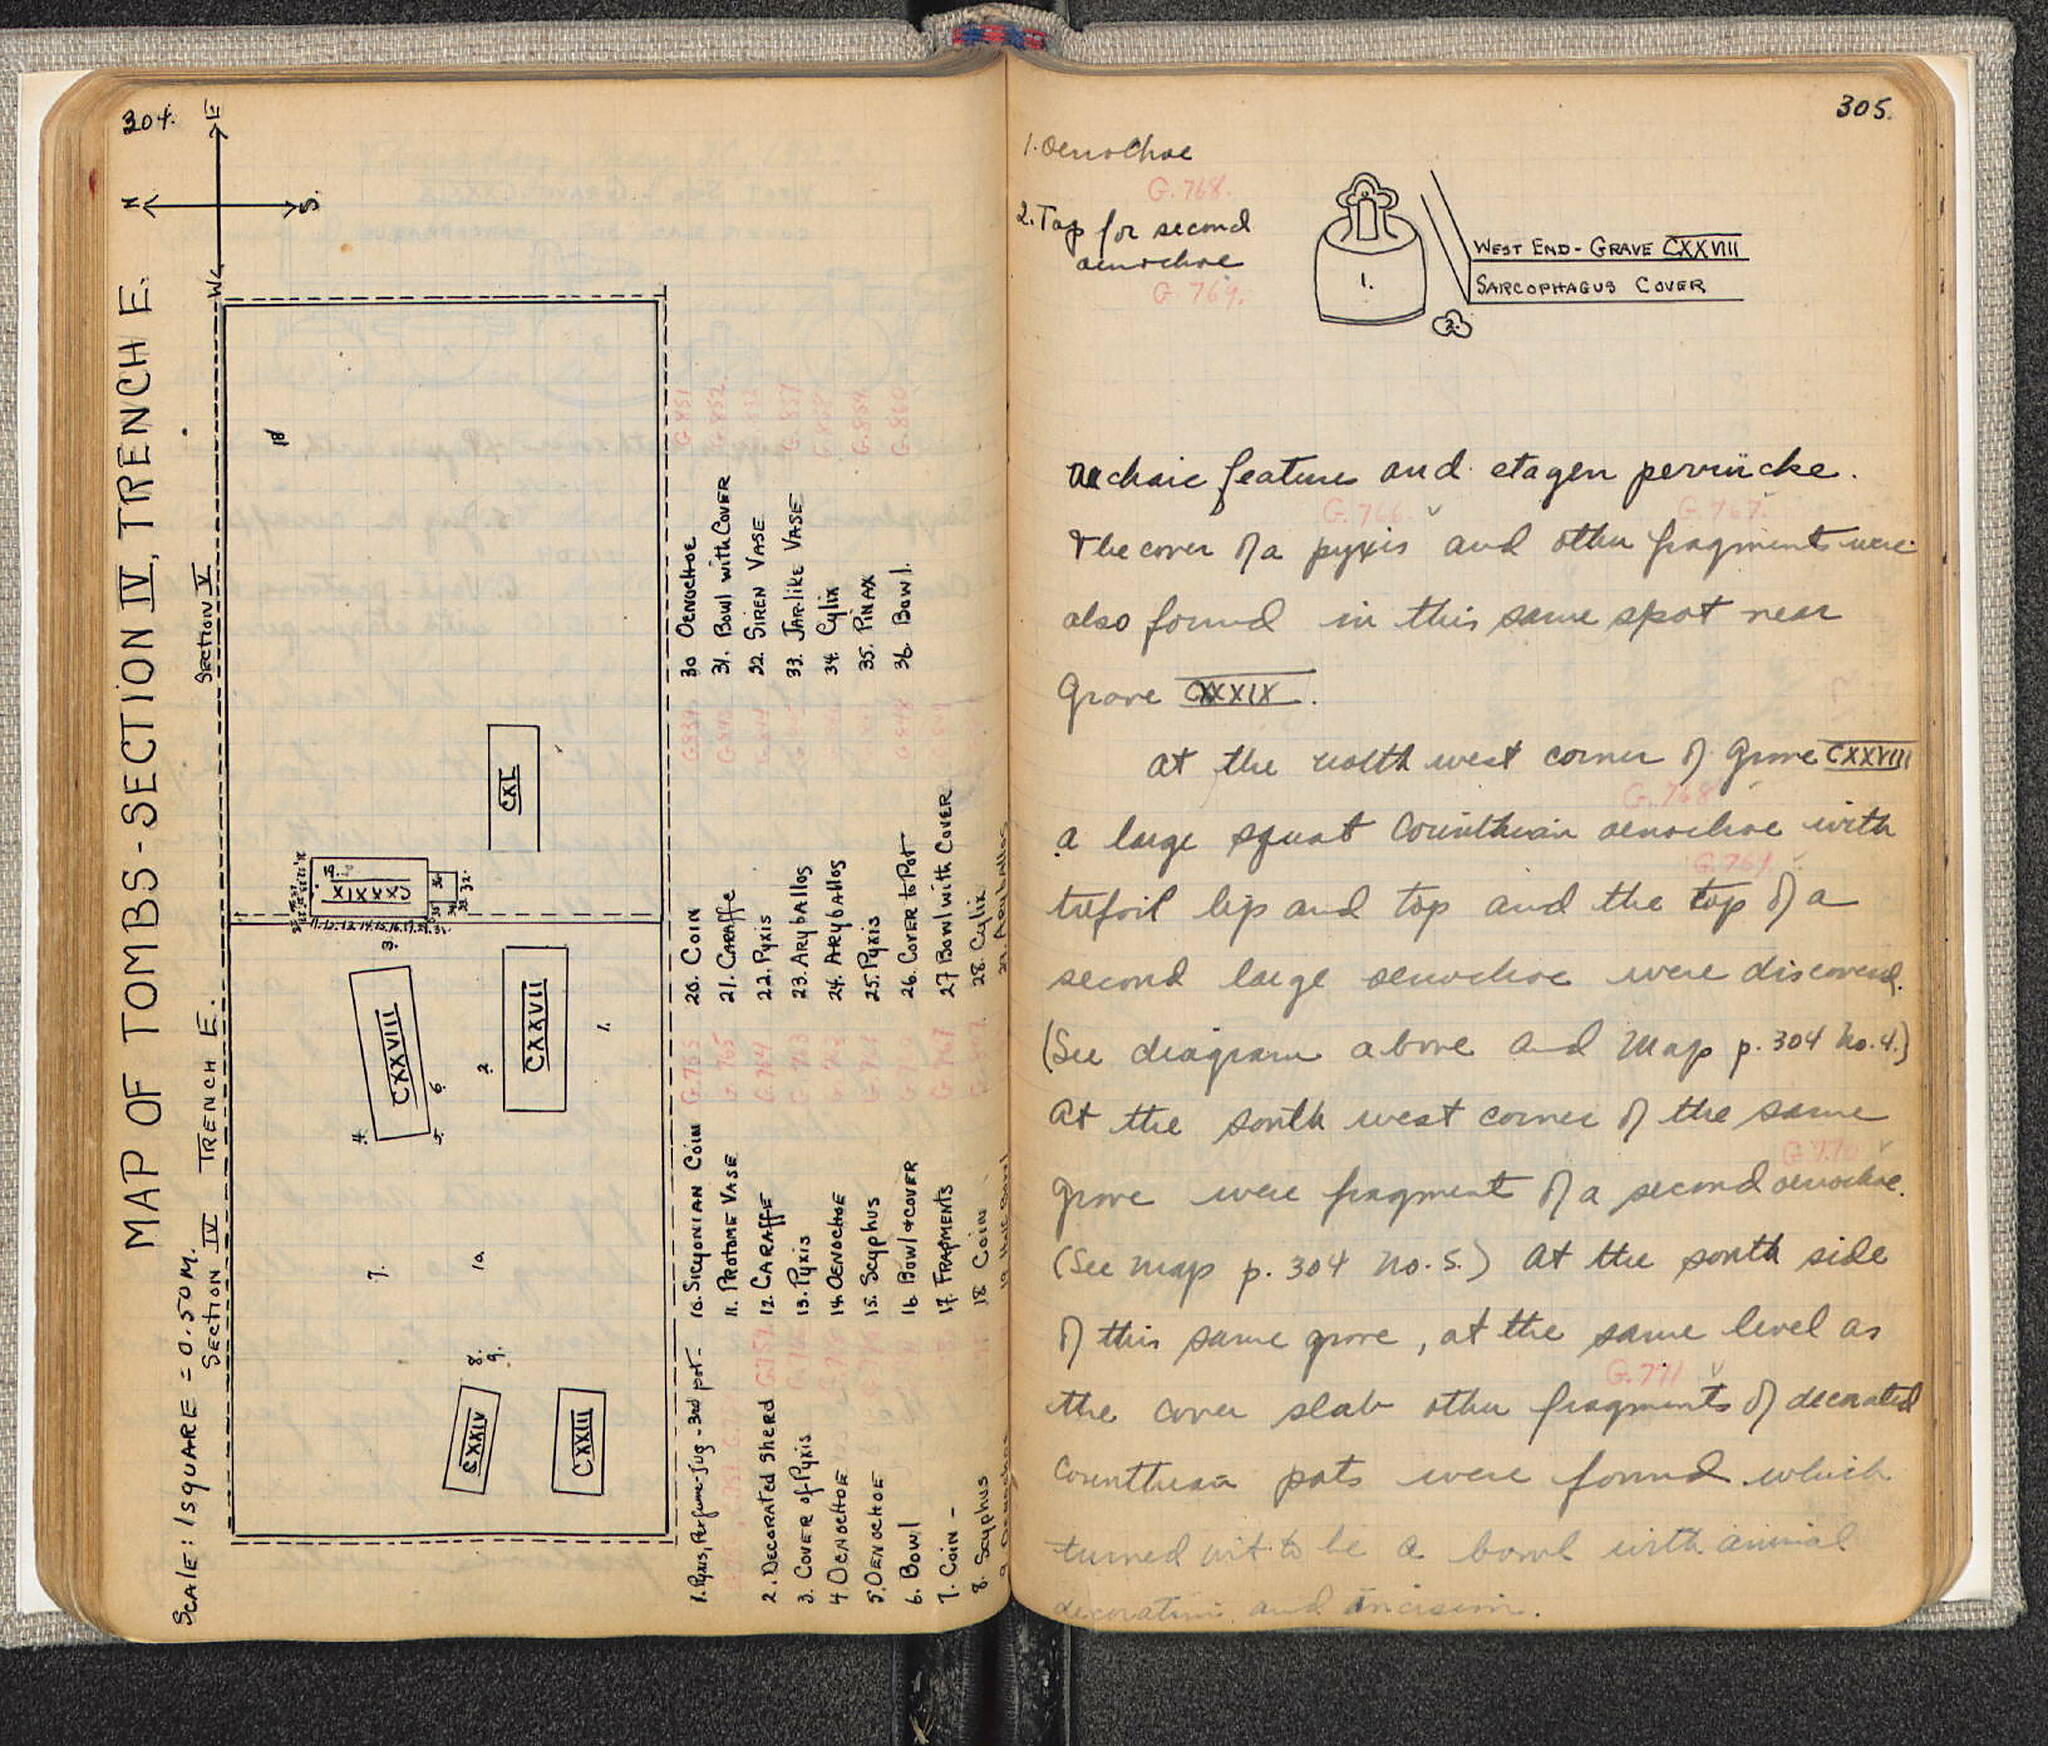 304.
N
S.
E
W
MAP OF TOMBS - SECTION IV, TRENCH E.
SCALE: 1 SQUARE = 0.50 M.
SECTION IV TRENCH E. SECTION V
18
CXL
CXXXIX
3.
CXXVIII
4.
5.
6.
2.
CXXVII
1.
7.
10
8.
9.
CXXIV
CXXIII
1. Pyxis, Perfume-Jug - 3rd pot -
2. DECORATED Sherd G.757
3. COVER of Pyxis
4 OENOCHOE
5. OENOCHOE
6. Bowl
7. COIN -
8. Scyphus
10. SICYONIAN COIN G.765
11. PROTOME VASE G.765
12. CARAFFE G.764
13. Pyxis G.763
14. OENOCHOE
15. SCYPHUS
16 Bowl & COVER
17. FRAGMENTS G.767
18. COIN
20. COIN
21. CARAFFE
22. Pyxis
23. ARYBALLOS
24. ARYBALLOS
25. Pyxis
26. COVER to Pot
27 Bowl with COVER
28. Cylix
29. Aryballos
30 OENOCHOE G.851
31. Bowl with COVER G.852
32. SIREN VASE
33. JAR-LIKE VASE
34. Cylix
35. PINAX G.854
36. Bowl. G.860
305.
1. Oenochoe
G.768.
2. Top for second
oenochoe
G.769.
1.
2.
WEST END - GRAVE CXXVIII
SARCOPHAGUS COVER
archaic features and etagen perrücke.
G.766. G.767.
The cover of a pyxis and other fragments were
also found in this same spot near
Grave CXXXIX.
At the north west corner of Grave CXXVIII
G.768
a large squat Corinthian oenochoe with
G.769.
trefoil lip and top and the top of a
second large oenochoe were discovered.
(See diagram above and Map p. 304 No. 4.)
At the south west corner of the same
G.770
grave were fragments of a second oenochoe.
(See map p. 304 No. 5.) At the south side
of this same grave, at the same level as
G.771
the cover slab other fragments of decorated
Corinthian pots were found which
turned out to be a bowl with animal
decoration and incision.